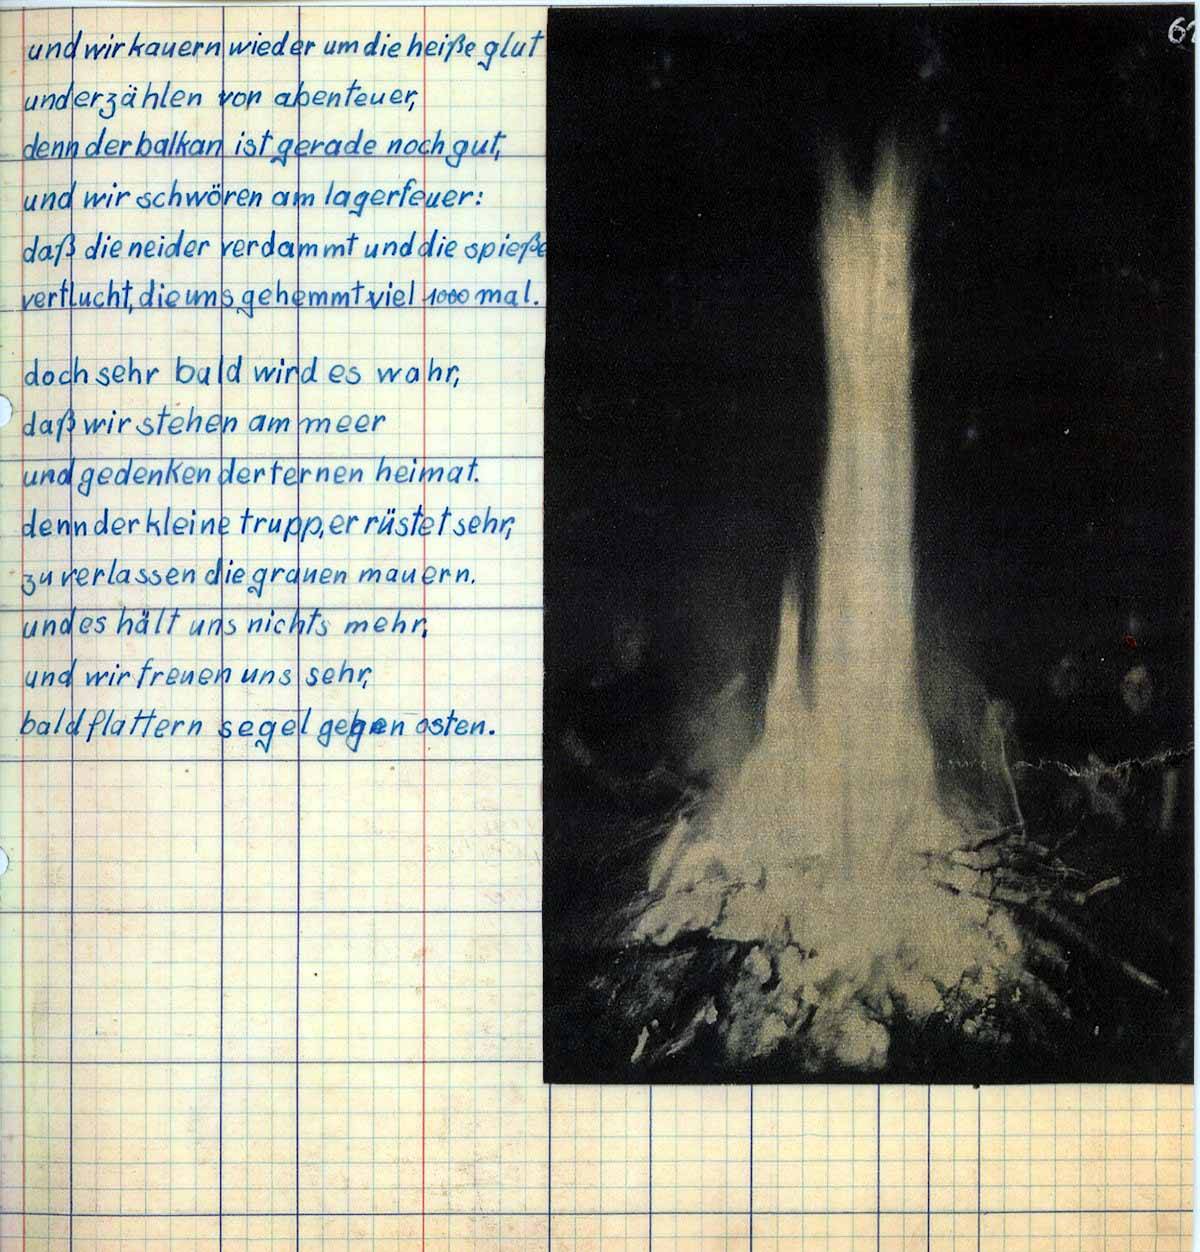 und wir kauern wieder um die heiße glut
und erzählen von abenteuer,
denn der balkan ist gerade noch gut,
und wir schwören am lagerfeuer:
daß die neider verdammt und die spieße
verflucht, die uns gehemmt viel 1000 mal.
doch sehr bald wird es wahr,
daß wir stehen am meer
und gedenken der fernen heimat.
denn der kleine trupp, er rüstet sehr,
zu verlassen die grauen mauern.
und es hält uns nichts mehr,
und wir freuen uns sehr,
bald flattern segel gegen osten.